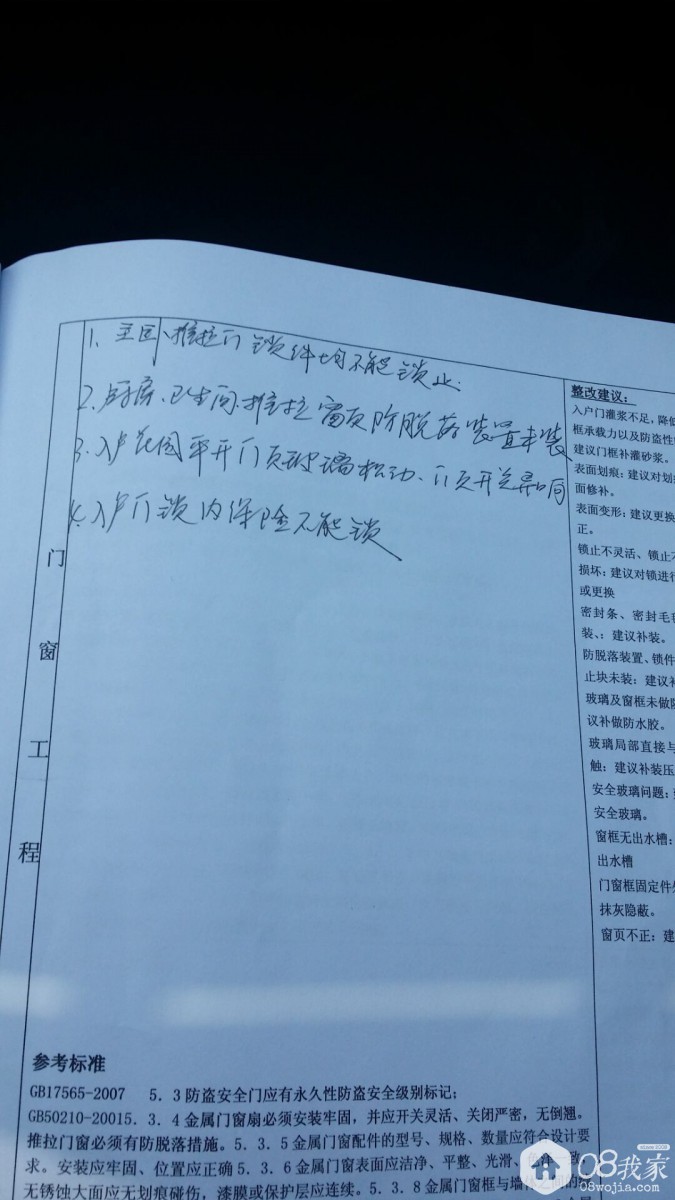 1、主卧、推拉门锁件均不能锁止.
2.厨房、卫生间推拉窗页防脱落装置未装
3.入户花园平开门页玻璃松动、门页开关异响
4.入户门锁内保险不能锁
门
窗
工
程
整改建议:
入户门灌浆不足,降低
框承载力以及防盗性
建议门框补灌砂浆。
表面划痕:建议对划
面修补。
表面变形:建议更换
正。
锁止不灵活、锁止不
损坏:建议对锁进行
或更换
密封条、密封毛
装、:建议补装。
防脱落装置、锁件
止块未装:建议补
玻璃及窗框未做防
议补做防水胶。
玻璃局部直接与
触:建议补装压
安全玻璃问题:
安全玻璃。
窗框无出水槽:
出水槽
门窗框固定件外
抹灰隐蔽。
窗页不正:建
参考标准
GB17565-2007 5.3防盗安全门应有永久性防盗安全级别标记;
GB50210-20015.3.4金属门窗扇必须安装牢固,并应开关灵活、关闭严密,无倒翘。
推拉门窗必须有防脱落措施。5.3.5金属门窗配件的型号、规格、数量应符合设计要
求。安装应牢固、位置应正确5.3.6金属门窗表面应洁净、平整、光滑、
无锈蚀大面应无划痕碰伤,漆膜或保护层应连续。5.3.8金属门窗框与墙体之间的
08我家
08wojia.com